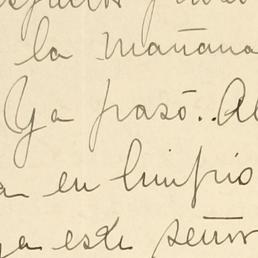 la mañana
Ya pasó.. Al
en limpio
ya este señor